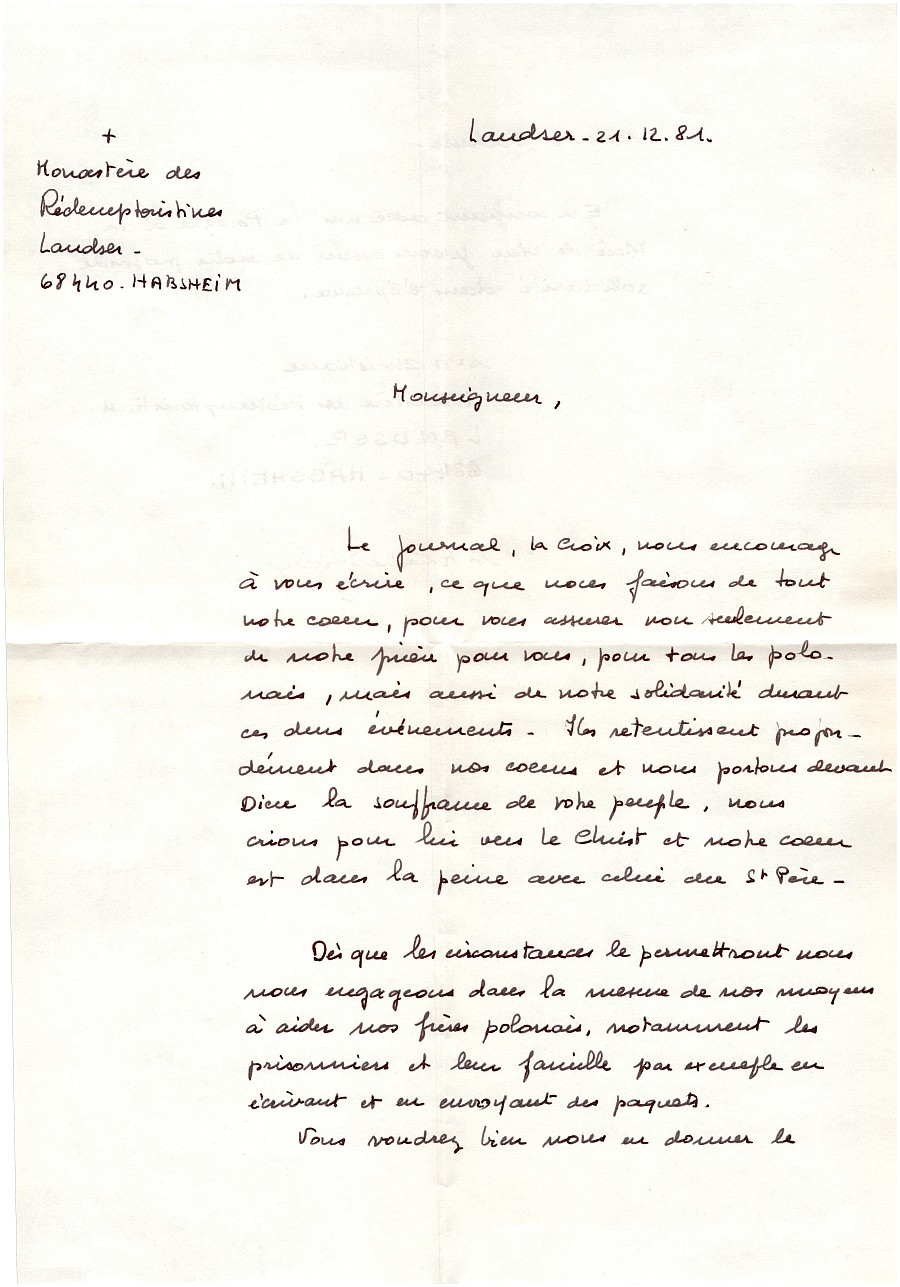 Landser - 21.12.81.
+
Monastère des
Rédemptoristines
Landser -
68440. HABSHEIM
Monseigneur,
Le journal, la Croix, nous encourage
à vous écrire, ce que nous faisons de tout
notre coeur, pour vous assurer non seulement
de notre prière pour vous, pour tous les polo-
nais, mais aussi de notre solidarité durant
ces durs événements - Ils retentissent profon-
dément dans nos coeurs et nous portons devant
Dieu la souffrance de votre peuple, nous
crions pour lui vers le Christ et notre coeur
est dans la peine avec celui du St Père -
Dès que les circonstances le permettront nous
nous engageons dans la mesure de nos moyens
à aider nos frères polonais, notamment les
prisonniers et leur famille par exemple en
écrivant et en envoyant des paquets.
Vous voudrez bien nous en donner le